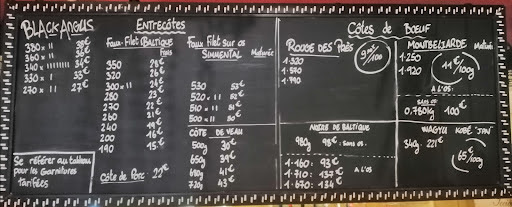 BLACK ANGUS
380 × 11 38€
360 × 11 36€
340 × 34€
330 × 1 33€
270 × 11 27€
Se référer au tableau
pour les Garnitures
tarifées
ENTRECÔTES
Faux-Filet (BALTIQUE
Frais
350 28€
320 26€
300 × 11 24€
280 23€
270 22€
260 21€
240 19€
200 16€
190 15€
Côte de Porc 22€
Faux Filet sur os
SIMMENTAL Maturée
530 53€
520 × 11 52€
510 × 11 51€
500 × 11 50€
CÔTE DE VEAU
500g 30€
650g 39€
680g 41€
720g 43€
Côtes de BOEUF
ROUGE DES Prés
1.320
1.570
1.790
9€/100
MONTBELIARDE Maturée
1.250
1.920
11€/100g
A L'OS:
sans os
0.780kg 100€
NOIRE DE BALTIQUE
980g 98€ sans os.
1.160: 93€
1.710: 137€ A L'OS
1.670: 134€
WAGYU KOBÉ "JAP"
340g 221€
65€/100g